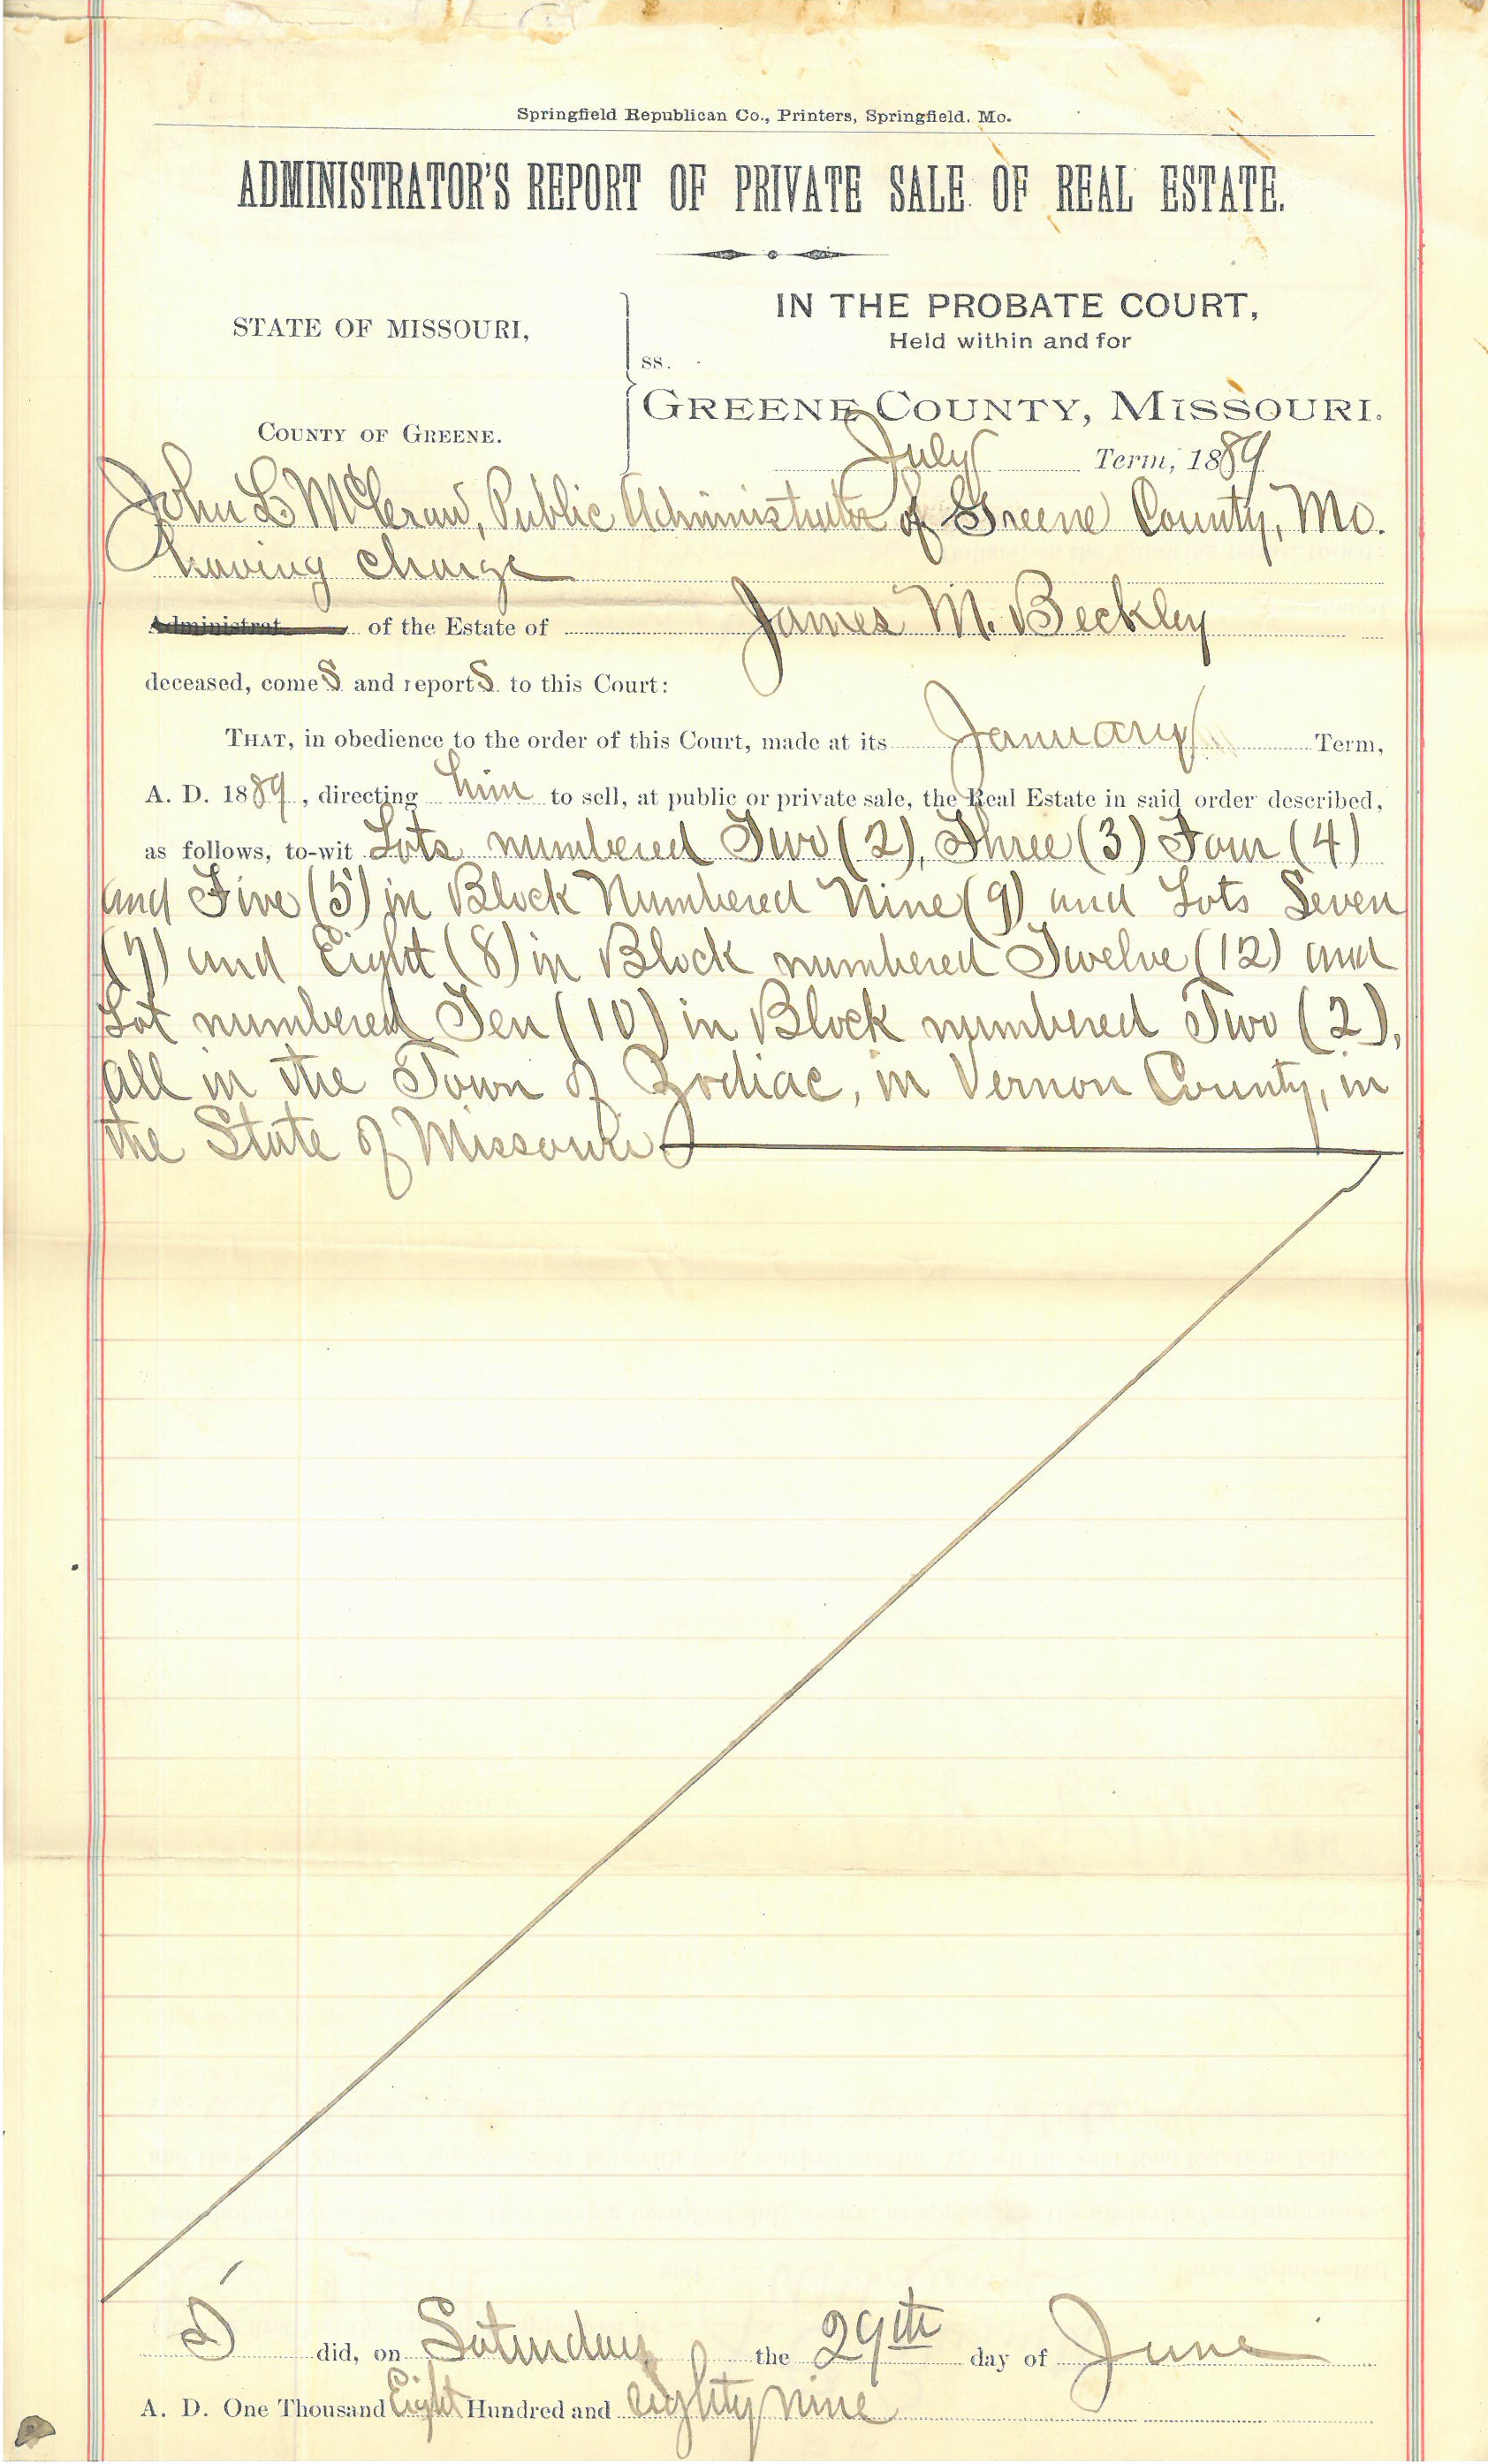 Springfield Republican Co., Printers, Springfield. Mo.
ADMINISTRATOR'S REPORT OF PRIVATE SALE OF REAL ESTATE.
STATE OF MISSOURI,
COUNTY OF GREENE.
ss.
IN THE PROBATE COURT,
Held within and for
GREENE COUNTY, MISSOURI.
July Term, 1889
John L McCraw, Public Administrator of Greene County, Mo.
having charge
Administrat of the Estate of James M. Beckley
deceased, comeS and reportS to this Court:
THAT, in obedience to the order of this Court, made at its January Term,
A. D. 1889, directing him to sell, at public or private sale, the Real Estate in said order described,
as follows, to-wit Lots numbered Two (2), Three (3) Four (4)
and Five (5) in Block Numbered Nine (9) and Lots Seven
(7) and Eight (8) in Block numbered Twelve (12) and
Lot numbered Ten (10) in Block numbered Two (2),
all in the Town of Zodiac, in Vernon County, in
the State of Missouri
I did, on Saturday the 29th day of June
A. D. One Thousand Eight Hundred and eighty nine